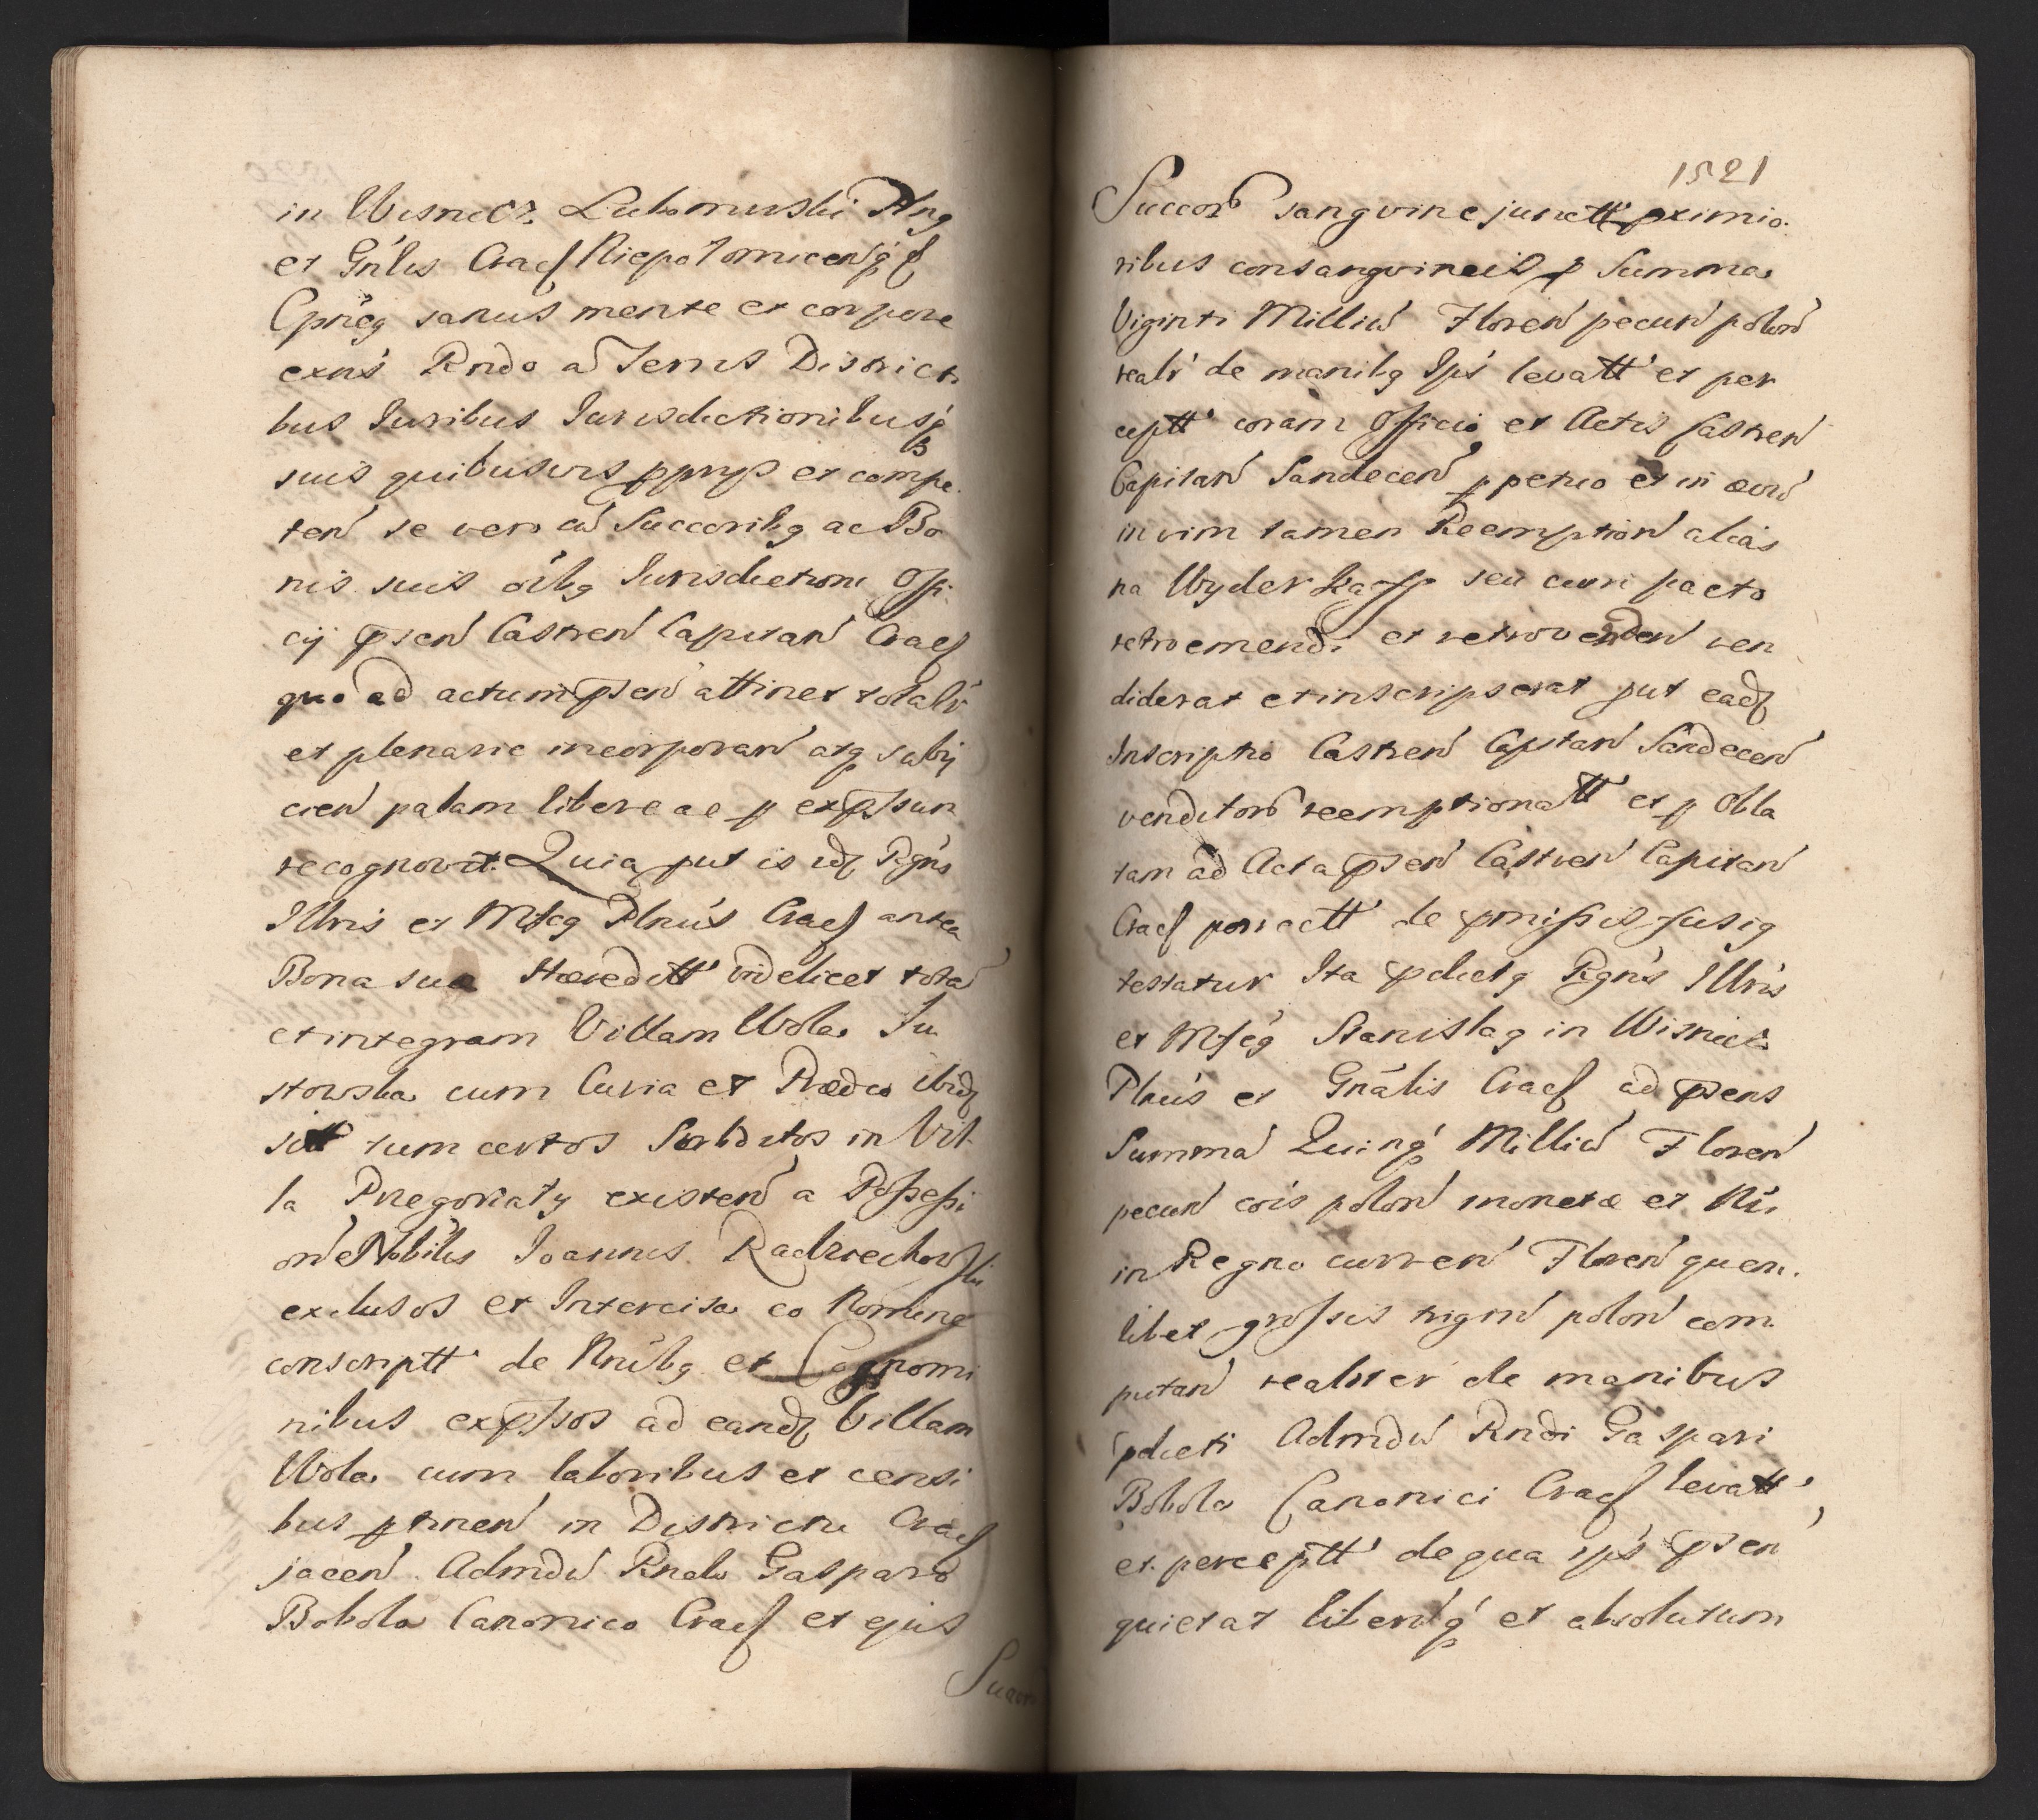 in Wisnicz Lubomirski Plng
et Gnlis Cracƒ Niepolomicenq́ꝫ
Cpneg sanus mente et corpore
exns Rndo a Terris District
bus Iuribus Iurisdictionibusq́
suis quibusvis pprys et compe
ten se vero cu Succoribg ac Bo
nis suis oibg Iurisdictioni Offi
cij psen Castren Capitan Cracƒ
quo ad actum psen attinet totalr
et plenarie incorporan atq subij
cien palam libere ac p expssum
recognovit. Quia put is idƒ Rgns
Illris et Mfcg Plnus Cracƒ antea
Bona sua Hæreditt videlicet tota
et integram Villam Wola Iu
stowska cum Curia et Prædio ibidƒ
sitt tum certos Subditos in Vil
la Przegorzaty existen a Possessi
one Nobilis Joannis Radzechowski
exclusos et Intercisa eo Nomine
conscriptt de Nnibg et Cognomi
nibus expssos ad eandƒ Villam
Wola cum laboribus et censi
bus ptinen in Districtu Cracƒ
jacen Admdu Rndo Gasparo
Bobola Canonico Cracƒ et ejus
Succor
1521
Succor sangvine junctt pximio
ribus consangvineis p Summa
Viginti Milliu Floren pecun polon
realr de manibg Ips levatt et per
ceptt coram Officio et Actis Castren
Capitan Sandecen ppetuo et in ævu
in vim tamen Reemption alias
na Wyderkaff seu cum pacto
retroemendi et retrovenden ven
diderat et inscripserat put eadƒ
Inscriptio Castren Capitan Sandecen
venditoro reemptionatt et p Obla
tam ad Acta psen Castren Capitan
Cracƒ porrectt de pmissis fusig
testatur Ita pdictg Rgns Illris
et Mfcg Stanislag in Wisnicz
Plnus et Gnalis Cracƒ ad psens
Summa Quinq́ Milliu Floren
pecun cois polon monetæ et Nri
in Regno curren Floren quem
libet grossis trigin polon com
putan realiter de manibus
pdicti Admdu Rndi Gaspari
Bobola Canonici Cracƒ levatt
et perceptt de qua ips psen
quietat liberuq́ et absolutum